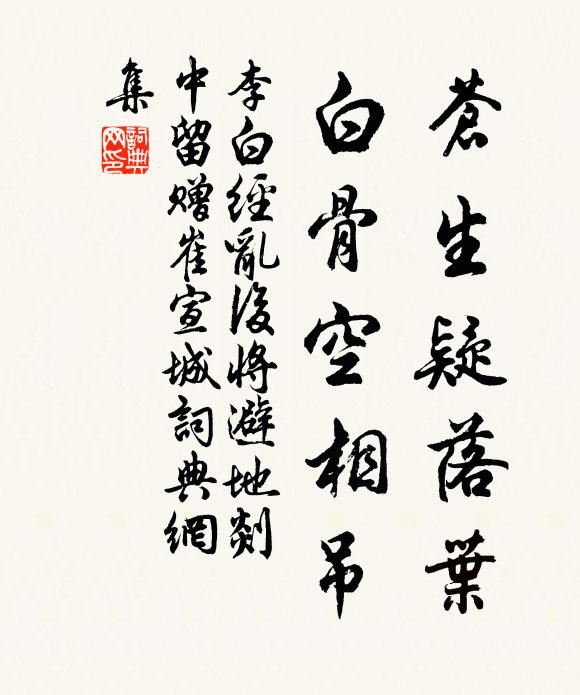 蒼生疑落葉
白骨空相吊
李白經亂後將避地剡
中留贈崔宣城詞典網
集
詞典
网印